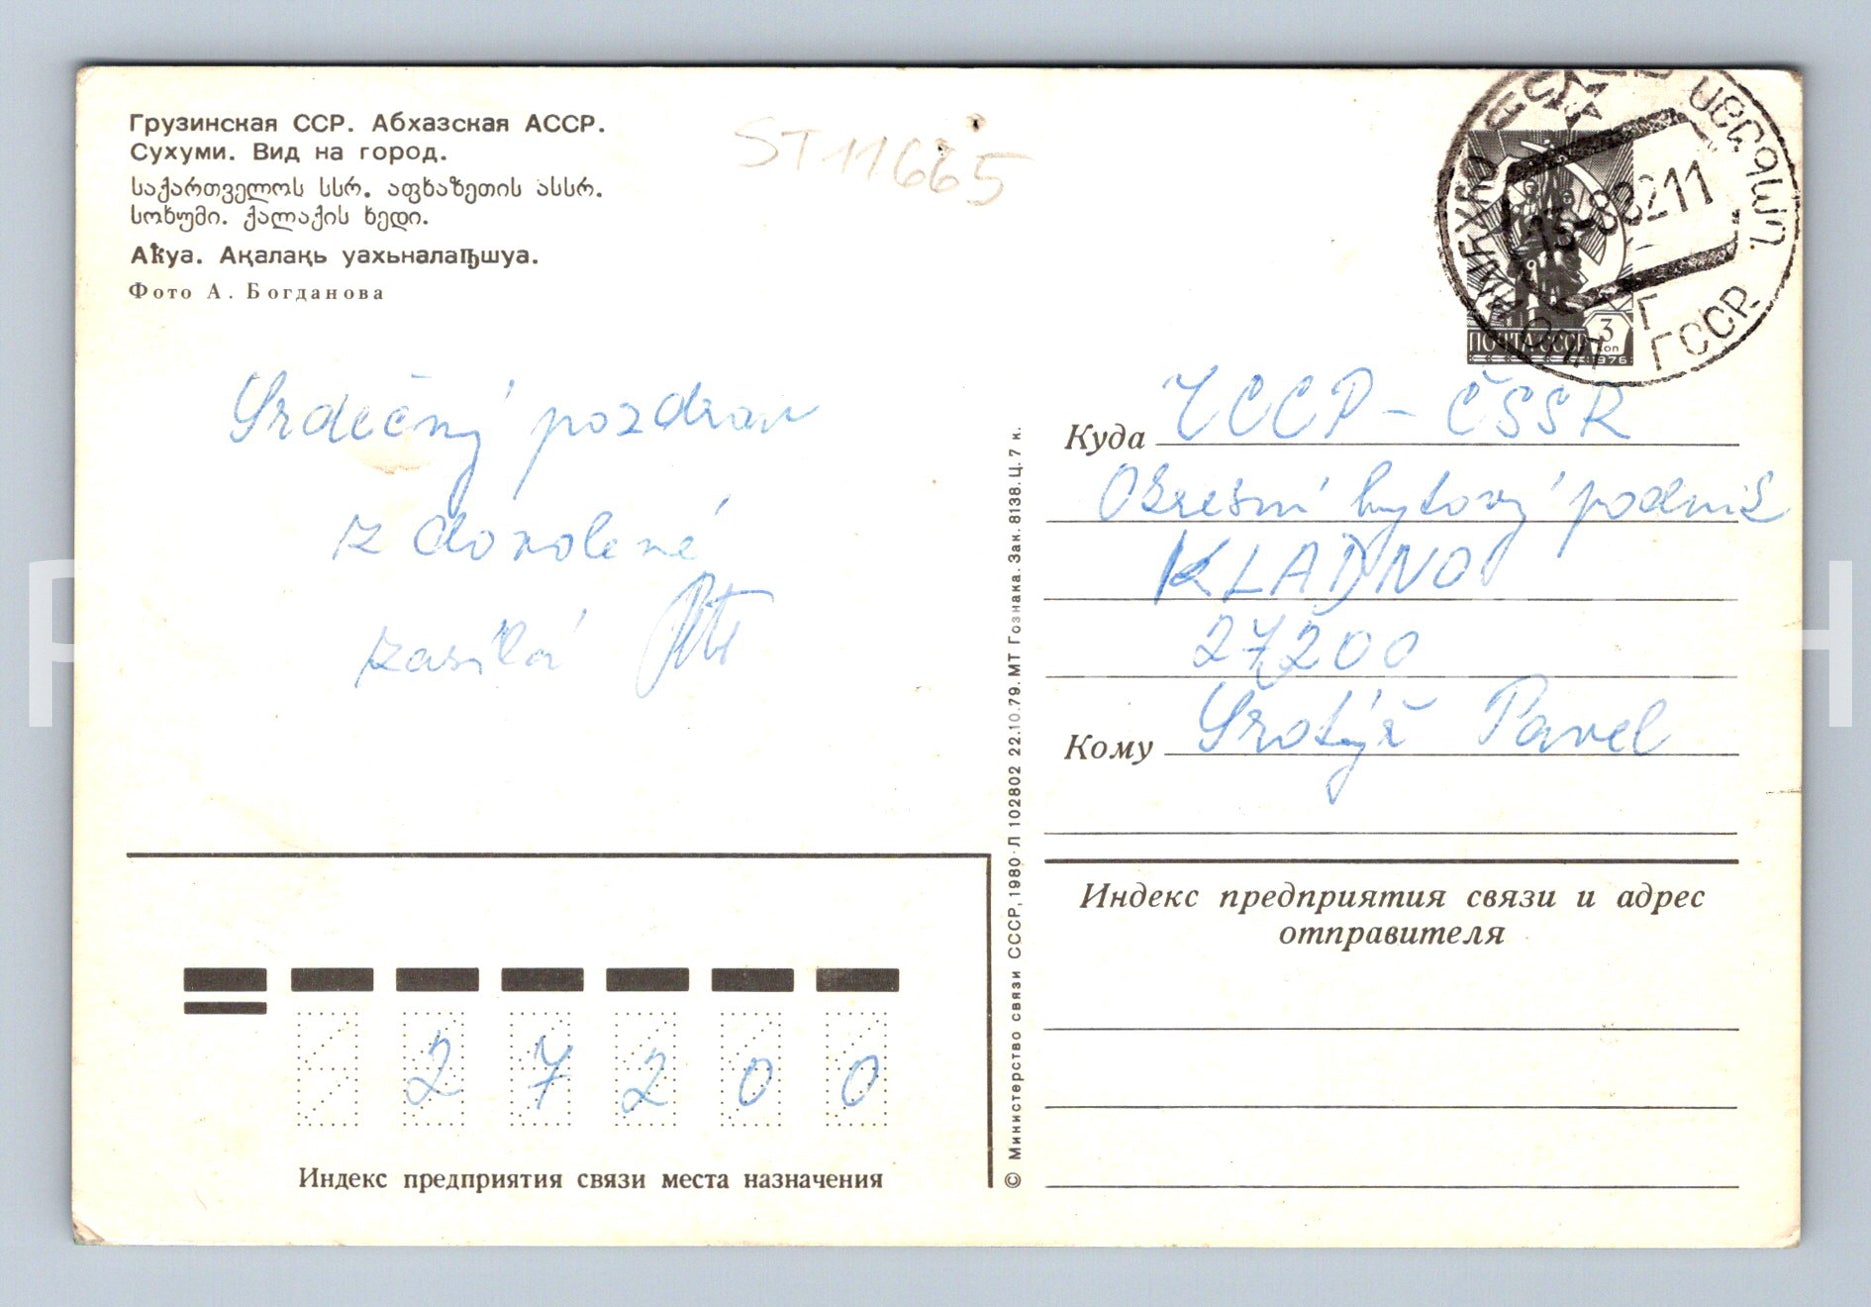 Грузинская ССР. Абхазская АССР.
Сухуми. Вид на город.
საქართველოს სსრ. აფხაზეთის ასსრ.
სოხუმი. ქალაქის ხედი.
Аҟуа. Ақалақь уахьналаҧшуа.
Фото А. Богданова
ST 11665
ПОЧТА СССР
3
коп
1976
13-8 82 11
ГССР.
Srdečný pozdrav
z dovolené
zasílá
Куда ЧССР - ČSSR
Okresní bytový podnik
KLADNO
27200
Кому Srotýř Pavel
Индекс предприятия связи и адрес
отправителя
27200
Индекс предприятия связи места назначения
© Министерство связи СССР, 1980 · Л 102802 22.10.79. МТ Гознака. Зак. 8138. Ц. 7 к.